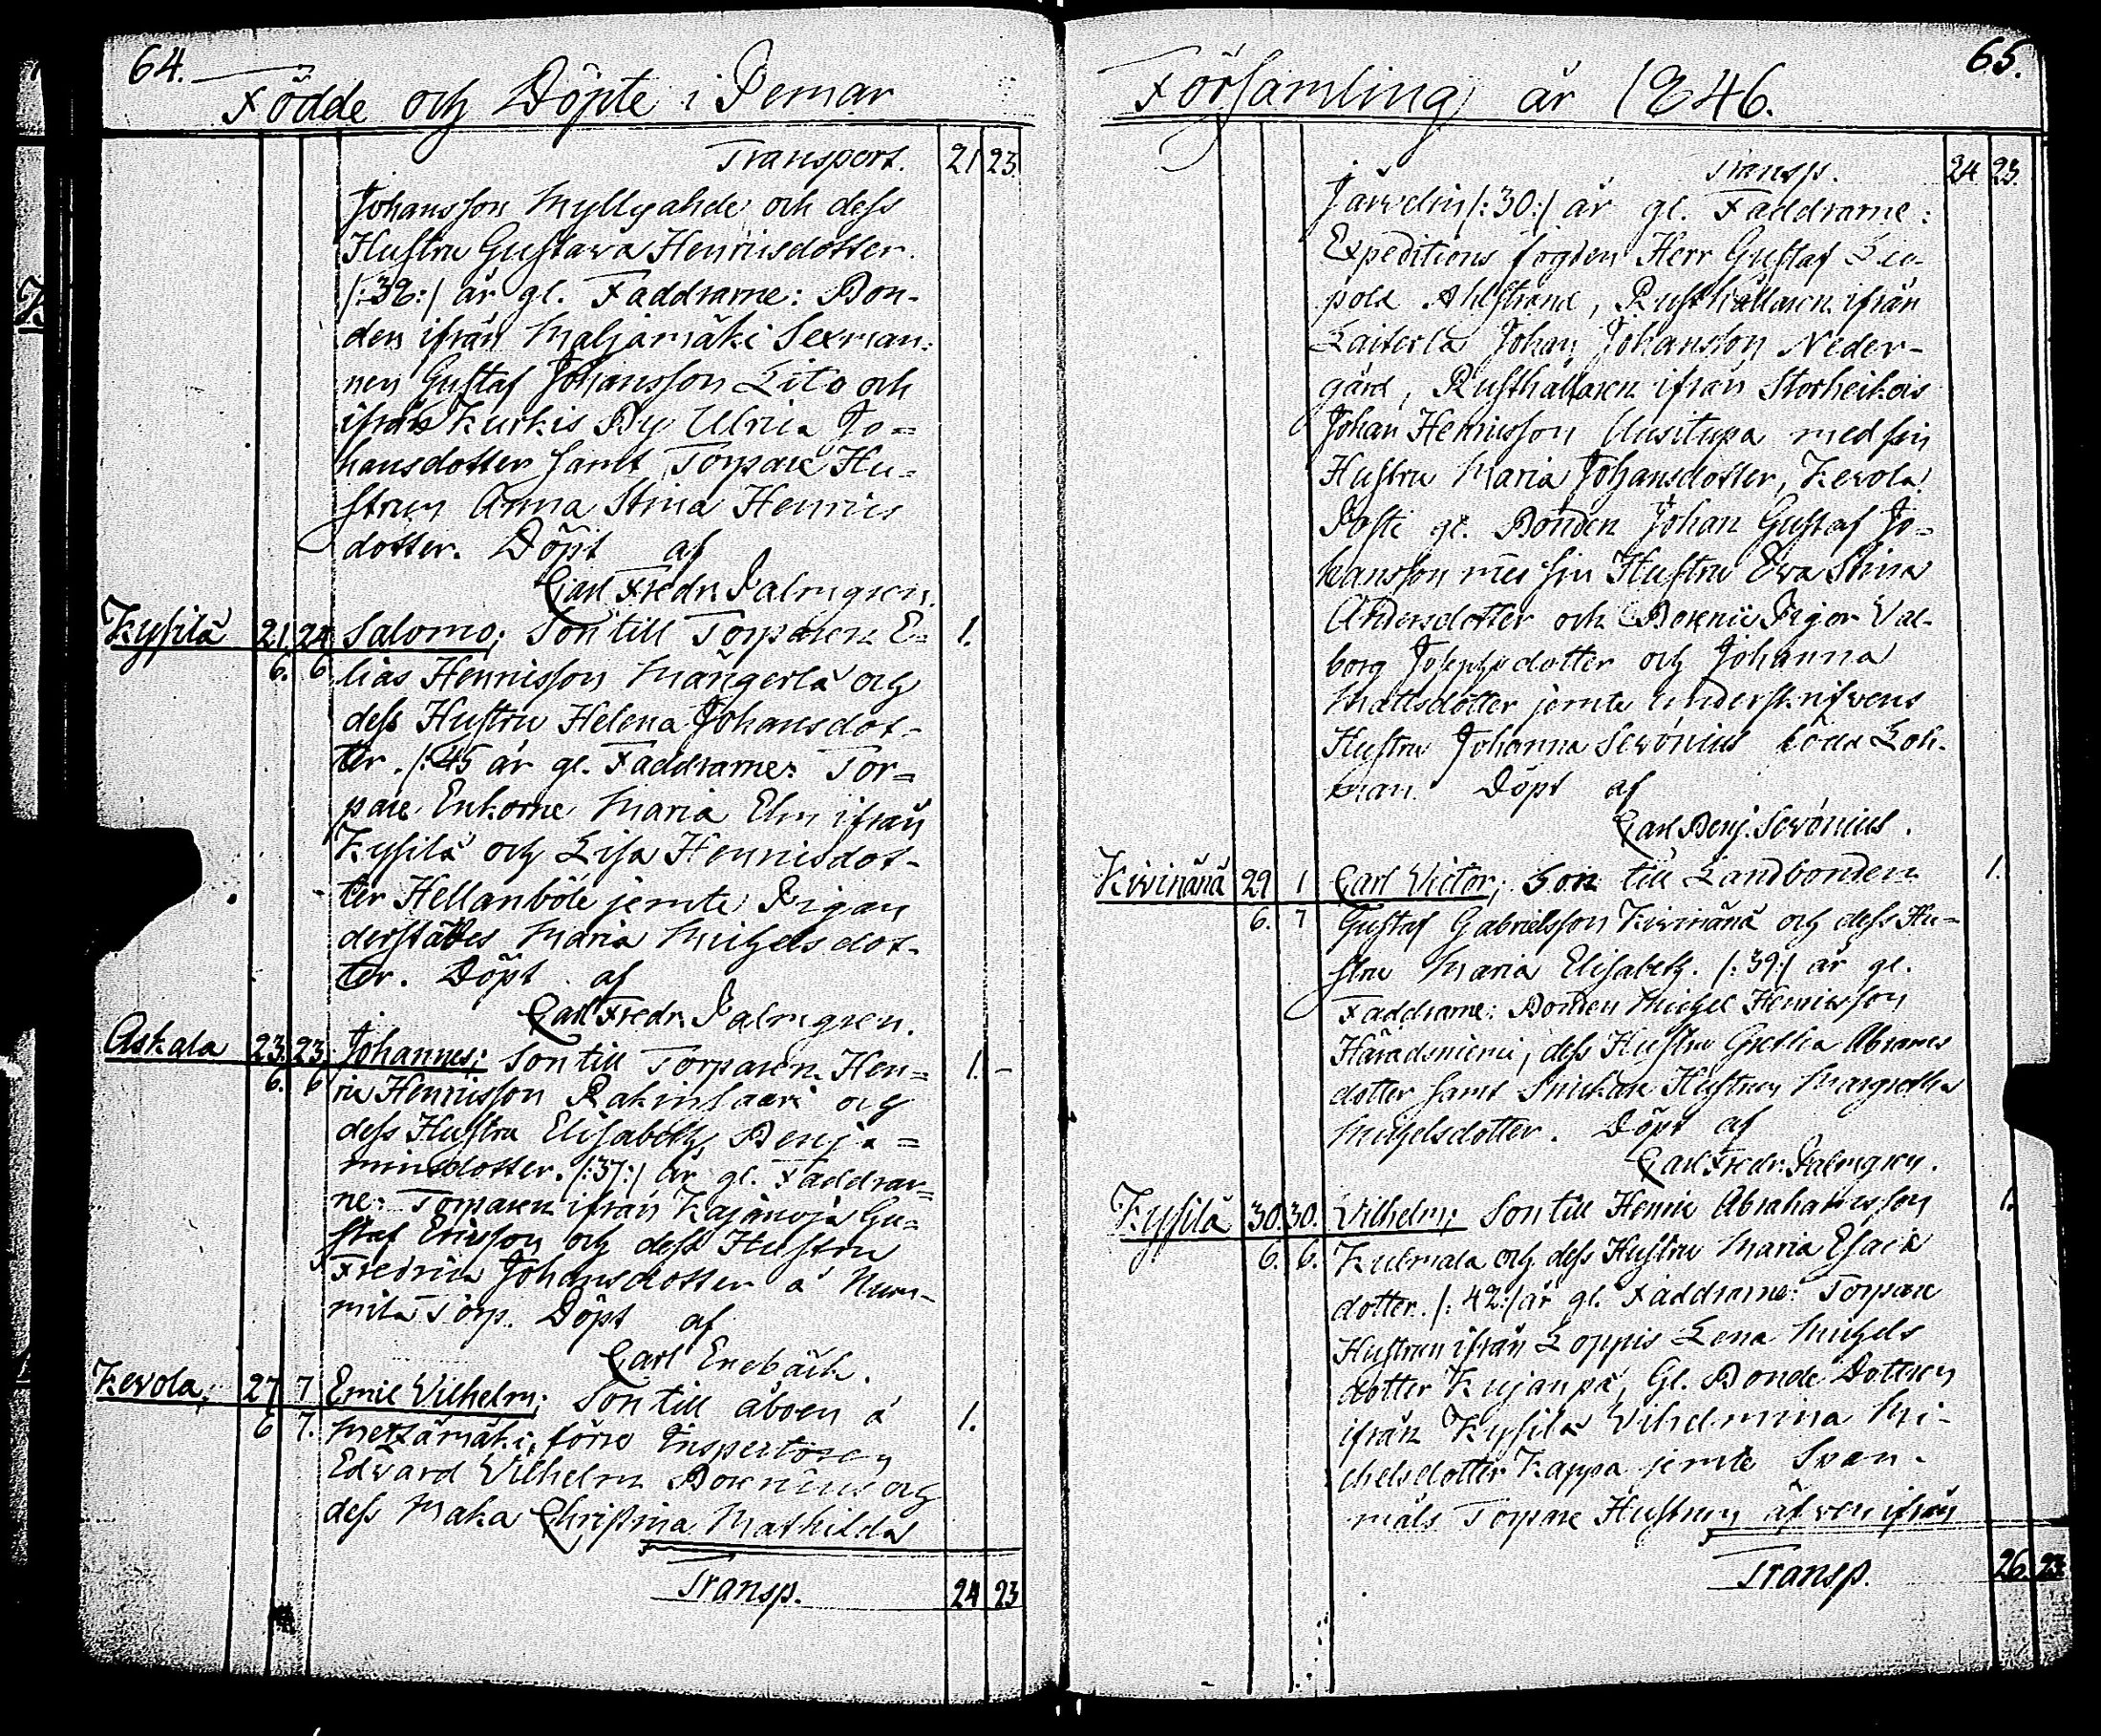 64.
Födde och Döpte i Pemar
Transport. 21 23.
Johansson Myllyahde och dess
Hustru Gustava Henricsdotter.
/:32:/ år gl. Faddrarne: Bon-
den ifrån Maljamäki Sexman-
nen Gustaf Johansson Lito och
ifrån Kurkis By Ulrica Jo=
hansdotter samt Torpare Hu=
strun Anna Stina Henrics
dotter. Döpt af
Carl Fredr. Palmgren.
Kysilä 21. 24 Salomo; Son till Torparen E= 1.
6. 6 lias Henricsson Mångerlä och
dess Hustru Helena Johansdot-
ter. /:45 år gl. Faddrarne: Tor=
pare Enkorne Maria Elin ifrån
Kysilä och Lisa Henricsdot-
ter Hellanböle jemte Pigan
derstädes Maria Michelsdot-
ter. Döpt af
Carl Fredr. Palmgren.
Askala 23. 23. Johannes; Son till Torparen Hen= 1. -
6. 6 ric Henricsson Rakinsaari och
dess Hustru Elisabeth Benja=
minsdotter. /:37:/ år gl. Faddrar=
ne: Torparen ifrån Kajamoja Gu=
staf Ericsson och dess Hustru
Fredrica Johansdotter å Num-
mila Torp. Döpt af
Carl Enebäck.
Kevola; 27 7 Emil Vilhelm; Son till åboen å 1.
6 7. Metzämäki, förre Inspectoren
Edvard Vilhelm Borenius och
dess Maka Christina Mathilda
Transp. 24 23
65.
Församling år 1846.
Transp. 24 23.
Järvelin /:30:/ år gl. Faddrarne:
Expeditions fogden Herr Gustaf Leo-
pold Ahlstrand, Rusthållaren ifrån
Laiterla Johan Johansson Neder-
gård, Rusthållaren ifrån Storheikois
Johan Henricsson Uusitupa med sin
Hustru Maria Johansdotter, Kevola
gl. Bonden Johan Gustaf Jo=
hansson med sin Hustru Eva Stina
Andersdotter och Pigor Val-
borg Josephsdotter och Johanna
Mattsdotter jemte underskrifvens
Hustru Johanna Servónius född Loh-
man. Döpt af
Carl Benj. Servónius.
Kivinänä 29 1 Carl Victor; Son till Landbonden 1.
6. 7 Gustaf Gabrielsson Kivinänä och dess Hu-
stru Maria Elisabeth. /:39:/ år gl.
Faddrarne: Bonden Michel Henricsson
Häradsniemi, dess Hustru Gretha Abrams
dotter samt Snickare Hustrun Margretha
Michelsdotter. Döpt af
Carl Fredr. Palmgren.
Kysilä 30. 30. Vilhelm; Son till Henric Abrahamsson 1.
6. 6. Kulmala och dess Hustru Maria Esaie
dotter. /:42:/ år gl. Faddrarne: Torpare
Hustrun ifrån Loppis Lena Michels
dotter Kujanpä, Gl. Bonde Dottren
ifrån Kysilä Vilhelmina Mi-
chelsdotter Kappa jemte Svan-
mäls Torpare Hustrun äfven ifrån
Transp. 26. 23